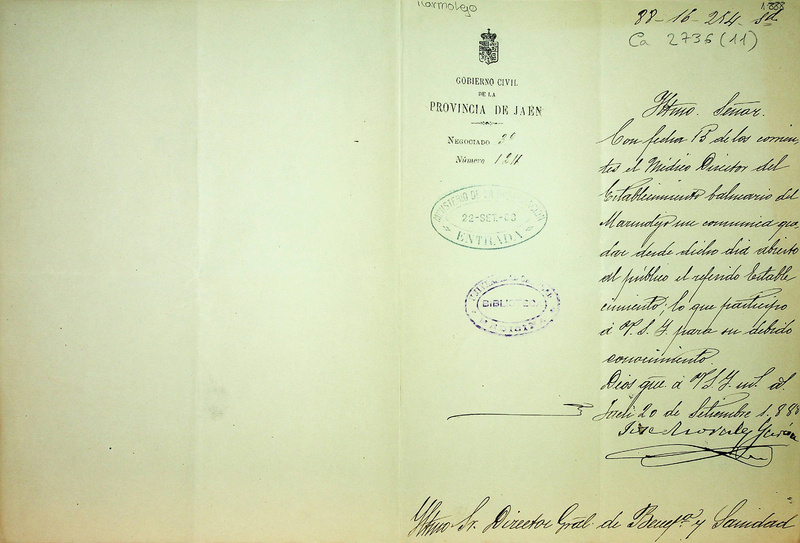 Marmolejo
1.888
88-16-254-sd
Ca 2736 (11)
GOBIERNO CIVIL
DE LA
PROVINCIA DE JAEN
NEGOCIADO 3º
Número 1211
MINISTERIO DE LA GOBERNACION
22-SET.-88
ENTRADA
BIBLIOTECA
MEDICINA
Iltmo. Señor.
Con fecha 15 de los corrien-
tes el Médico Director del
Establecimiento balneario del
Marmolejo me comunica que-
dar desde dicho dia abierto
al público el referido Estable
cimiento; lo que participo
á V.S.I. para su debido
conocimiento
Dios gue. á V.S.I. ms. as.
Jaen 20 de Setiembre 1.888
José Morales
Iltmo Sr. Director Gral. de Benefa. y Sanidad